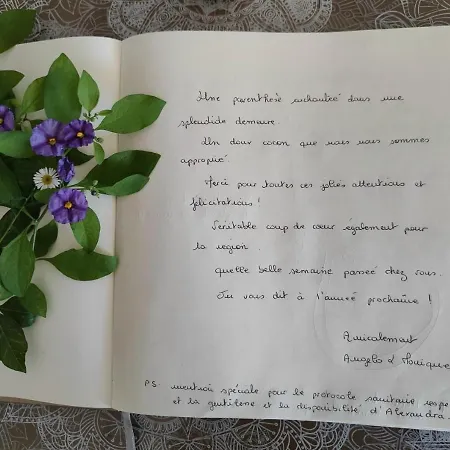 Une parenthèse enchantée dans une
splendide demeure.
Un doux cocon que nous nous sommes
approprié
Merci pour toutes ces jolies attentions et
félicitations !
Véritable coup de cœur également pour
la région.
quelle belle semaine passée chez vous.
On vous dit à l'année prochaine !
Amicalement
Angelo & Monique
P.S. mention spéciale pour le protocole sanitaire
et la gentillesse et la disponibilité d'Alexandra.